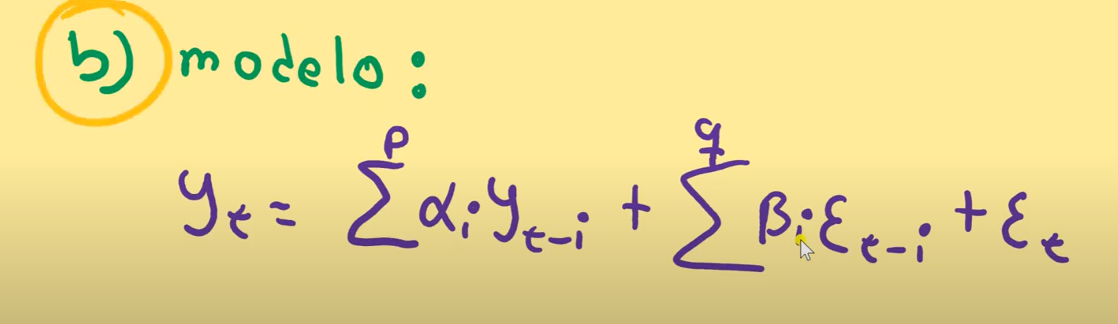 b) modelo:
y_t = \sum^{p} α_i y_{t-i} + \sum^{q} β_i ε_{t-i} + ε_t